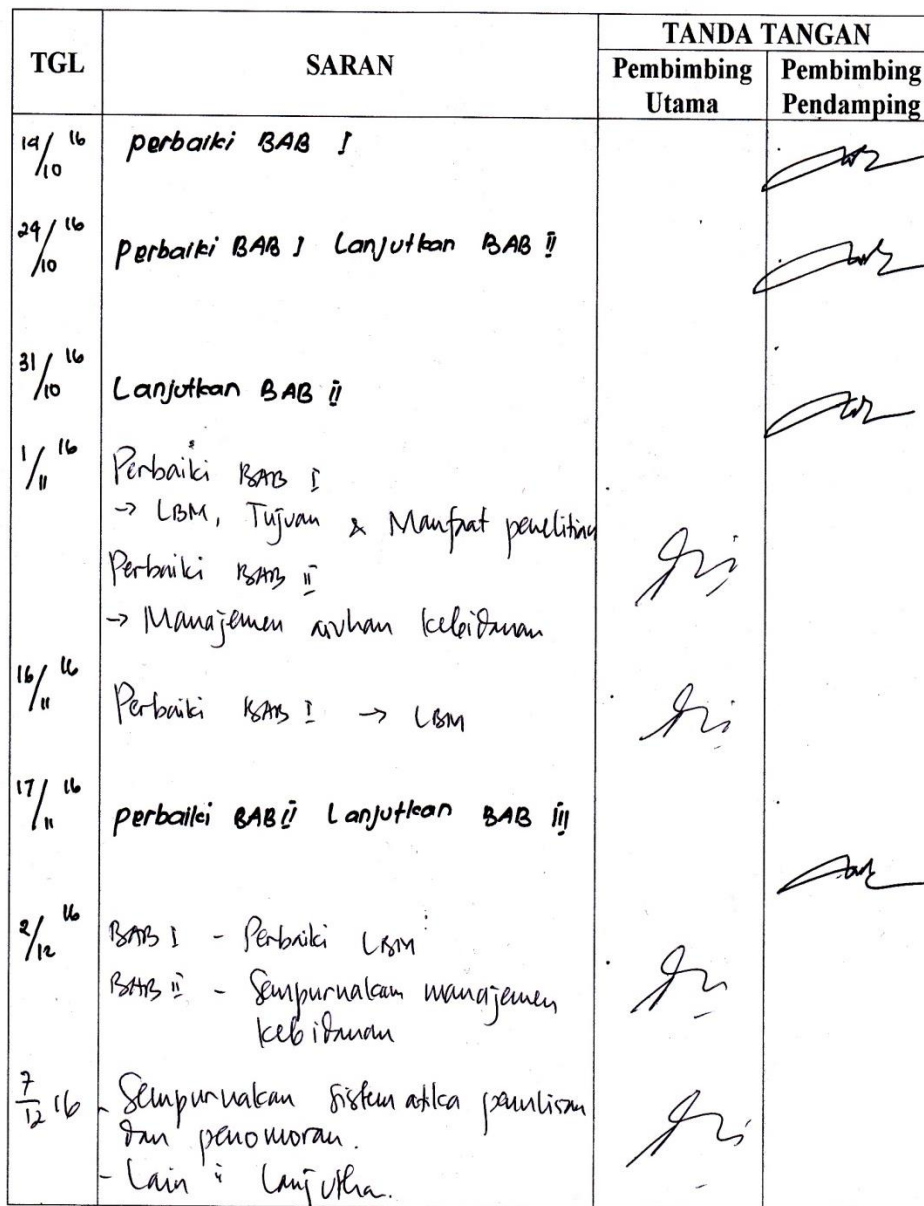 TGL
SARAN
TANDA TANGAN
Pembimbing Utama
Pembimbing Pendamping
19/10 16
perbaiki BAB I
24/10 16
perbaiki BAB I Lanjutkan BAB II
31/10 16
Lanjutkan BAB II
1/11 16
Perbaiki BAB I
→ LBM, Tujuan & Manfaat penelitian
Perbaiki BAB II
→ Manajemen asuhan kebidanan
16/11 16
Perbaiki BAB I → LBM
17/11 16
perbaiki BAB II Lanjutkan BAB III
2/12 16
BAB I - Perbaiki LBM
BAB II - Sempurnakan manajemen
kebidanan
7/12 16
- Sempurnakan sistematika penulisan
dan penomoran.
- Lain